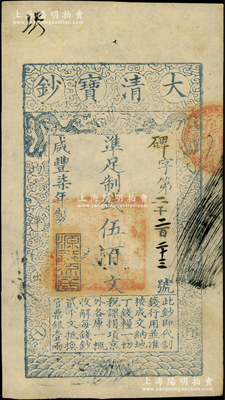 上海陽明拍賣
大清寶鈔
碑字第二千二百二十三號
準足制錢伍百文
咸豐柒年製
此鈔即代制
錢行用並准
按成交納地
丁錢糧一切
稅課捐項京
外各庫一概
收解每錢鈔
貳千文抵換
官票銀壹兩
上海陽明拍賣